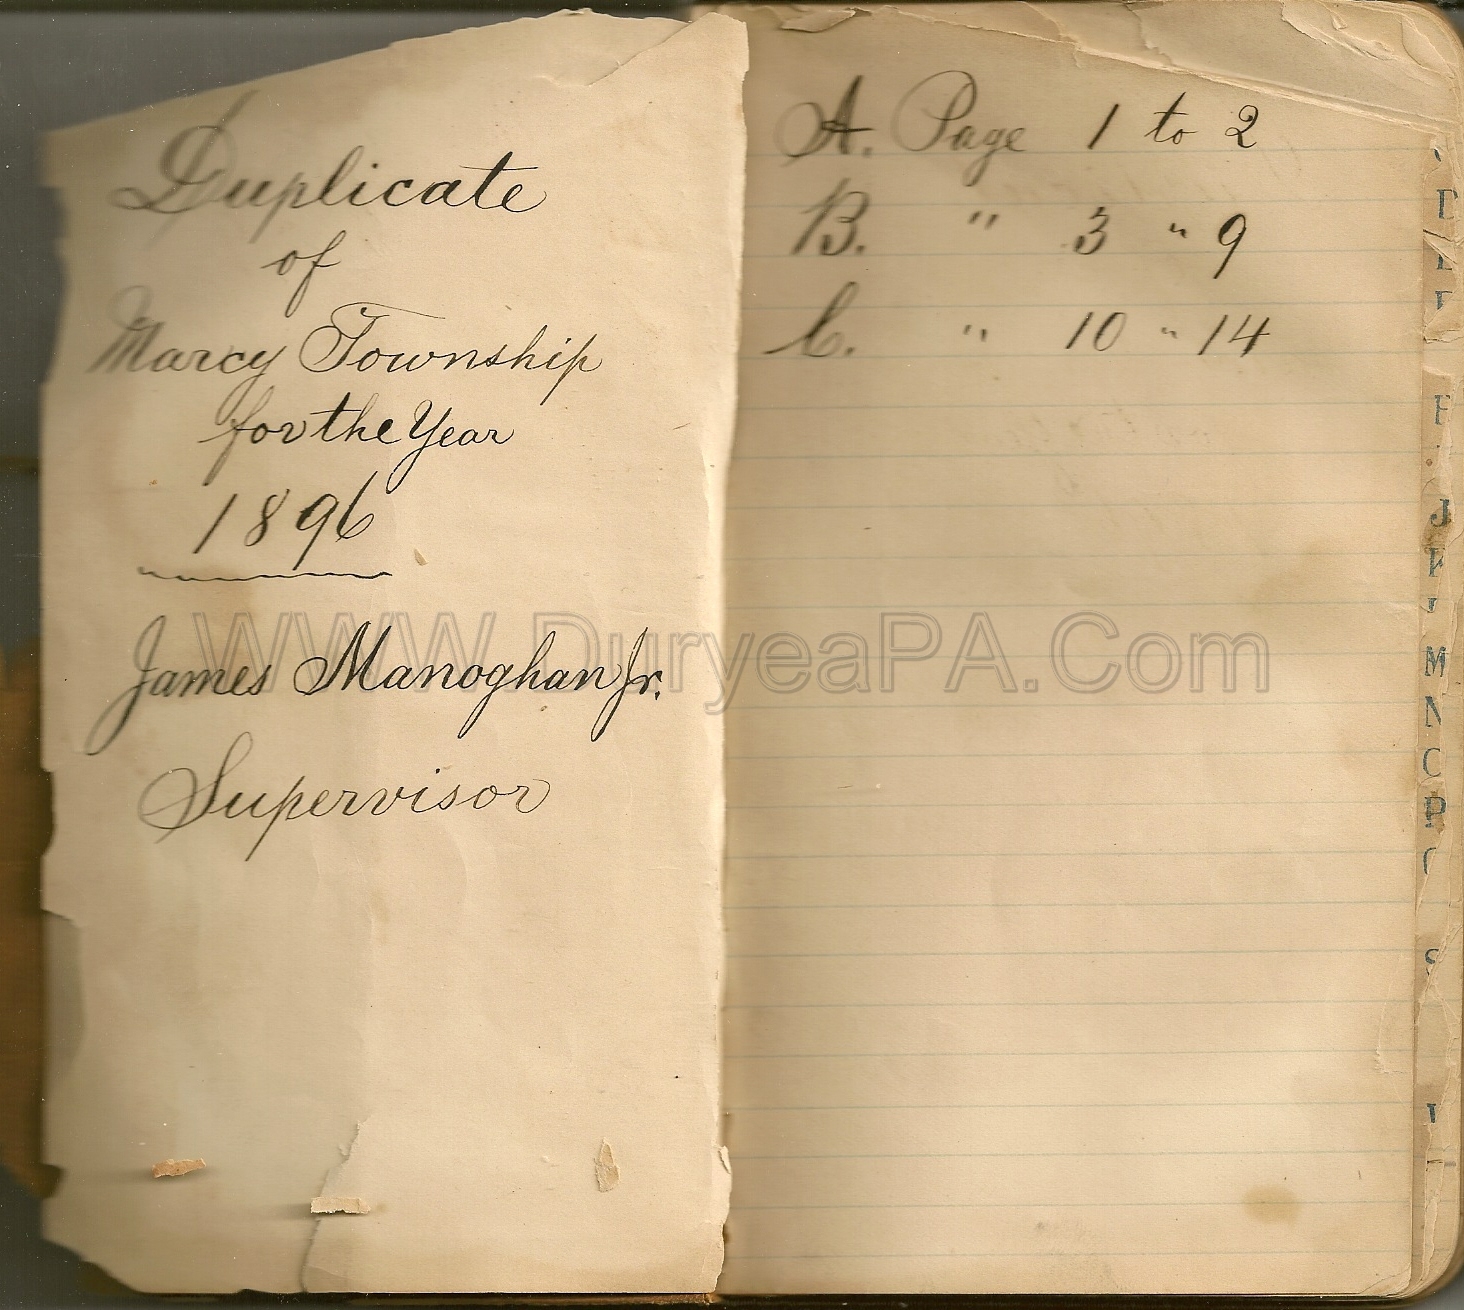 Duplicate
of
Marcy Township
for the Year
1896
James Manoghan Jr.
Supervisor
A. Page 1 to 2
B. " 3 " 9
C. " 10 " 14
WWW.DuryeaPA.Com
J
M
N
P
S